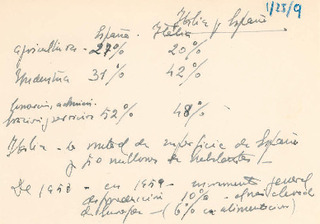 1/28/9
Italia y España
España. Italia
agricultura - 27% 20%
Industria 31% 42%
servicios 52% 48%
Italia - la mitad de superficie de España
y 50 millones de habitantes -
De 1958 - en 1959 - incremento general
de producción 10% -
de Europa - (6% en alimentación)